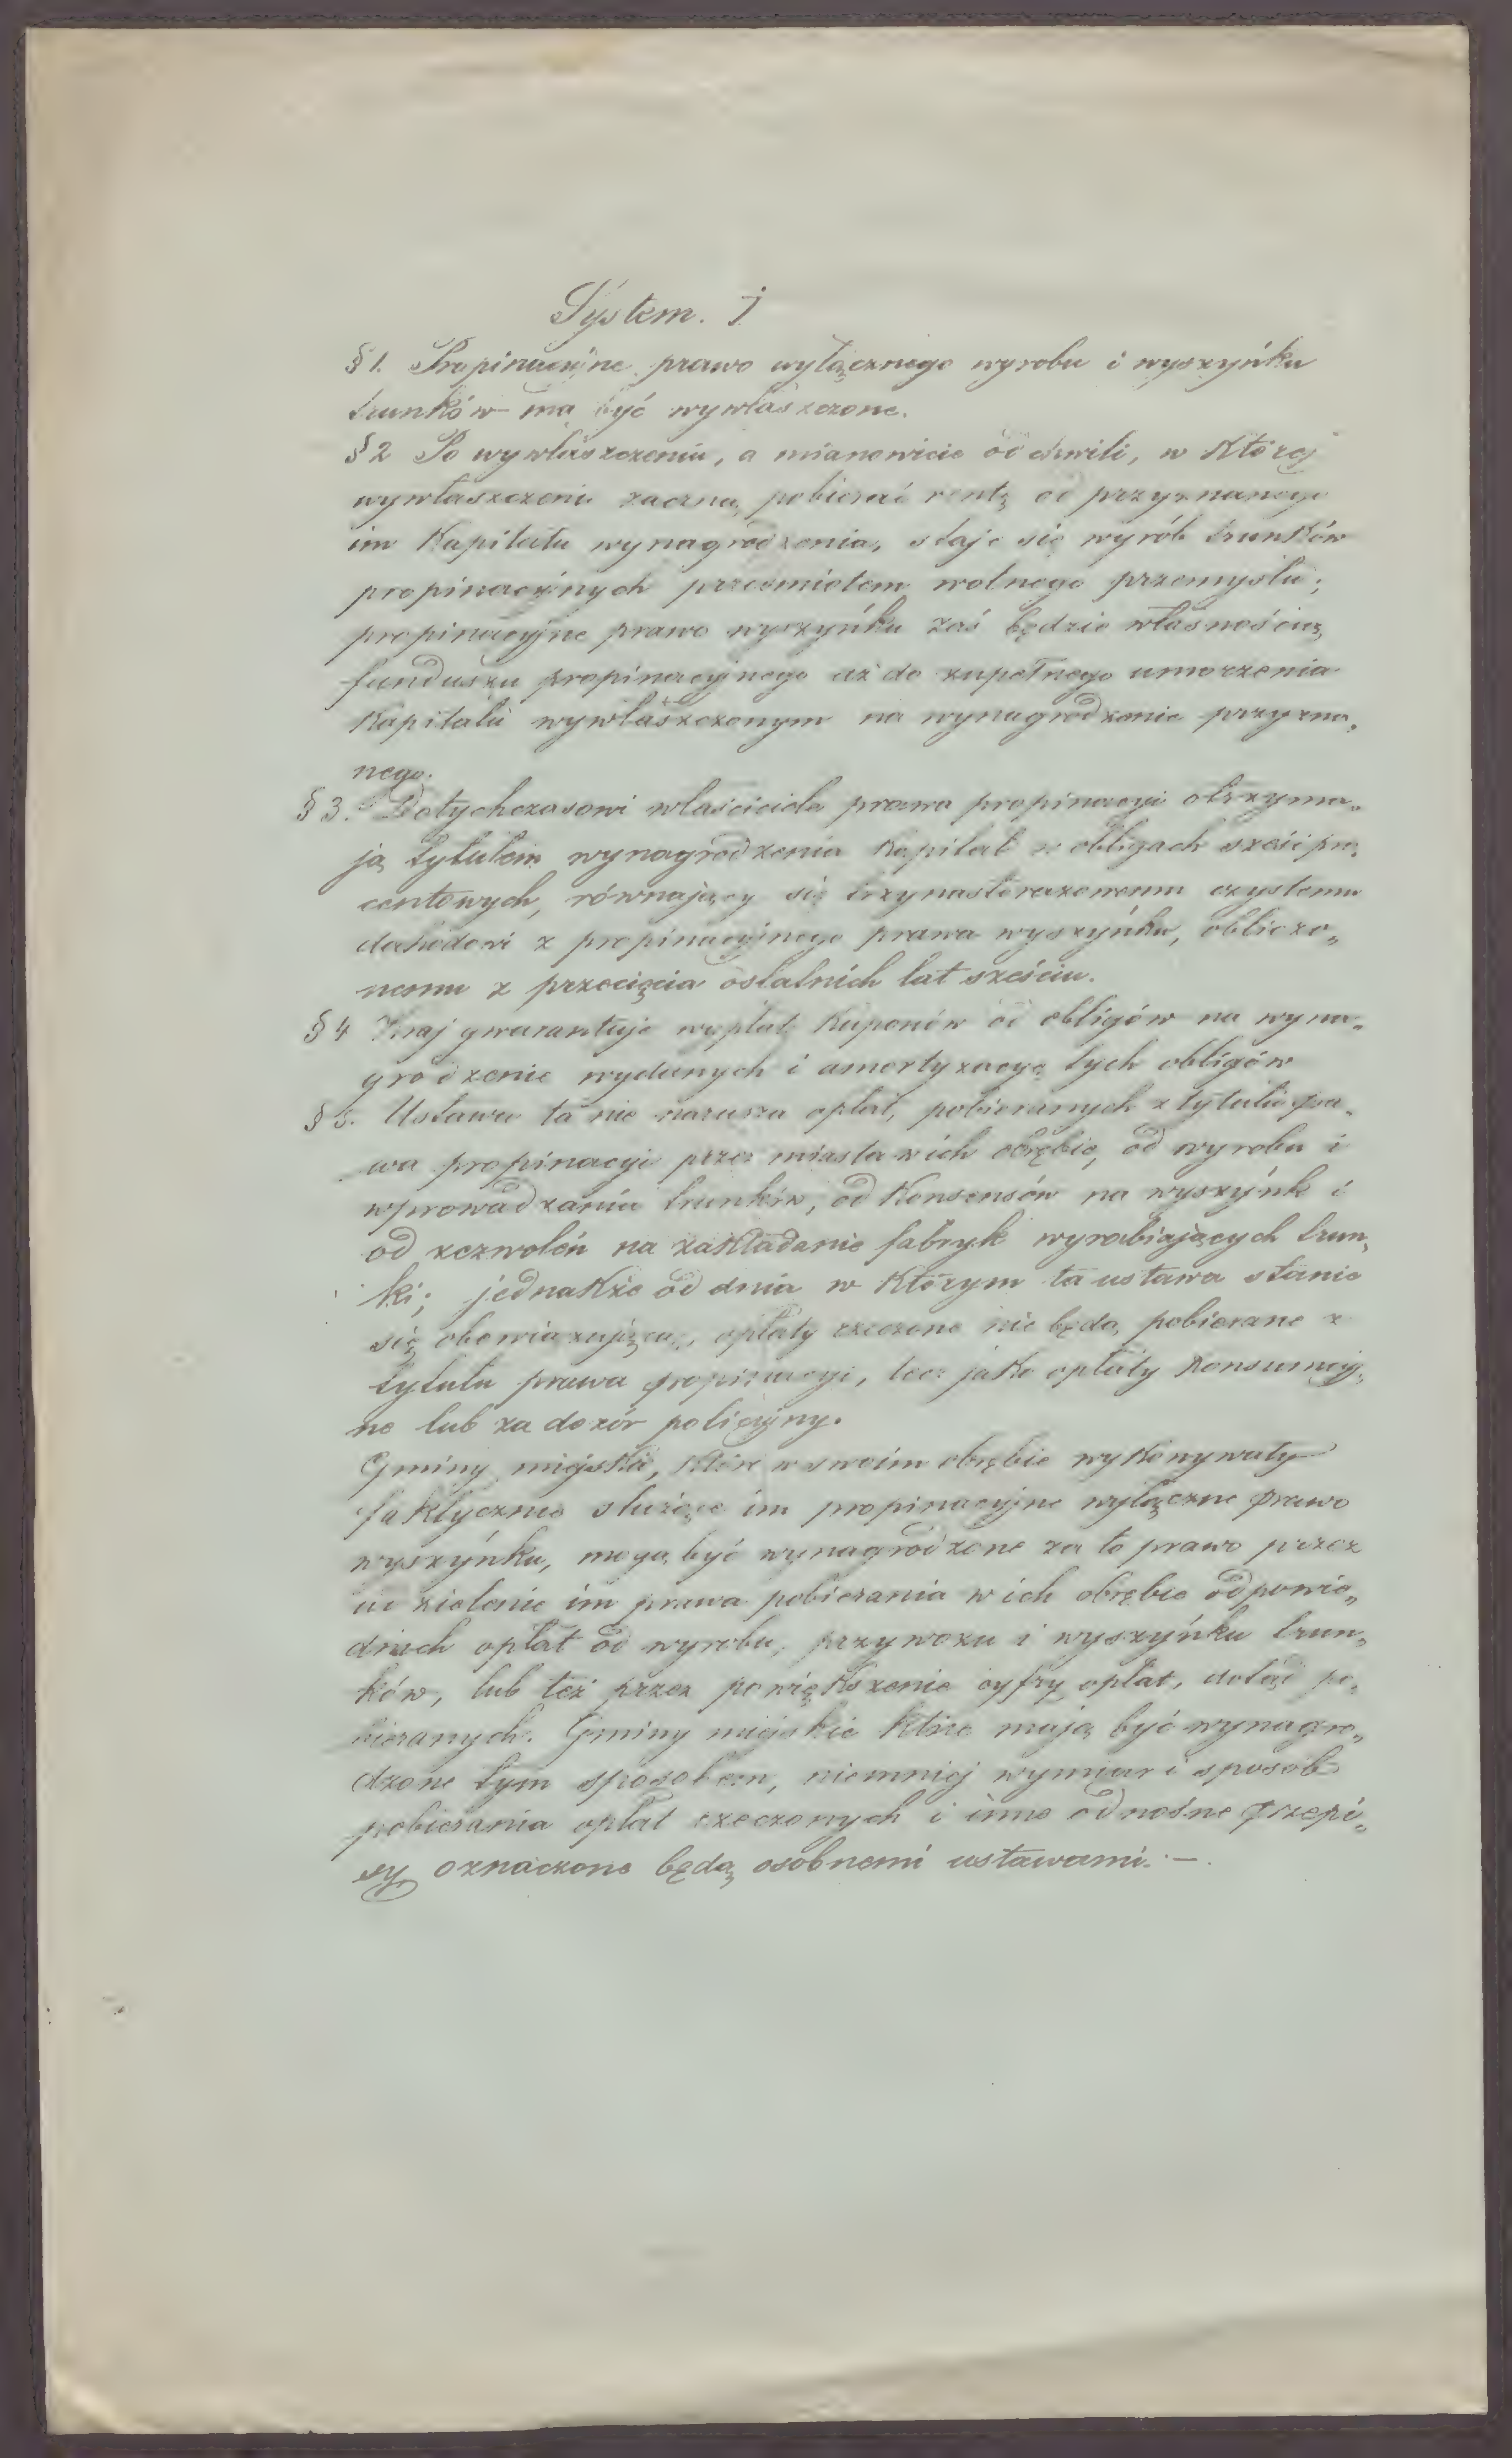 System. I
§ 1. Propinacyjne prawo wyłącznego wyrobu i wyszyńku
trunków ma być wywłaszczone.
§ 2 Po wywłaszczeniu, a mianowicie od chwili, w której
wywłaszczeni zaczną pobierać rentę od przyznanego
im Kapitału wynagrodzenia, staje się wyrób trunków
propinacyjnych przedmiotem wolnego przemysłu;
propinacyjne prawo wyszyńku zaś będzie własnością
funduszu propinacyjnego aż do zupełnego umorzenia
Kapitału wywłaszczonym na wynagrodzenie przyzna„
nego.
§ 3. Dotychczasowi właściciele prawa propinacyi otrzyma„
ją tytułem wynagrodzenia Kapitał w obligach sześć pro„
centowych, równający się trzynastorazowemu czystemu
dochodowi z propinacyjnego prawa wyszyńku, obliczo„
nemu z przecięcia ostatnich lat sześciu.
§ 4 Kraj gwarantuje wypłatę Kuponów od obligów na wyna„
grodzenie wydanych i amortyzacyę tych obligów
§ 5. Ustawa ta nie narusza opłat, pobieranych z tytułu pra„
wa propinacyi przez miasta w ich obrębie, od wyrobu i
wprowadzania trunków, od Konsensów na wyszynk i
od zezwoleń na zakładanie fabryk wyrabiających trun„
ki; jednakże od dnia w którym ta ustawa stanie
się obowiązującą, opłaty rzeczone nie będą pobierane z
tytułu prawa propinacyi, lecz jako opłaty Konsumcyj„
ne lub za dozór policyjny.
Gminy miejskie, które w swoim obrębie wykonywały
faktycznie służące im propinacyjne wyłączne prawo
wyszyńku, mogą być wynagrodzone za to prawo przez
udzielenie im prawa pobierania w ich obrębie odpowie„
dnich opłat od wyrobu, przywozu i wyszyńku trun„
ków, lub też przez powiększenie cyfry opłat, dotąd po„
bieranych. Gminy miejskie które mają być wynagro„
dzone tym sposobem, niemniej wymiar i sposób
pobierania opłat rzeczonych i inne odnośne przepi„
sy oznaczone będą osobnemi ustawami. —